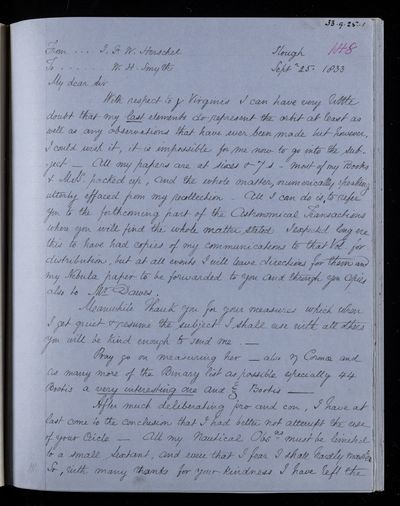 33-9-25-1
From .... J. F. W. Herschel Slough 148
To ...... W. H. Smyth Septr 25. 1833
My dear Sir
With respect to γ Virginis I can have very little
doubt that my last elements do represent the orbit at least as
well as any observations that have ever been made but however
I could wish it, it is impossible for me now to go into the Sub-
ject — All my papers are at sixes & 7s - most of my Books
& MSS packed up, and the whole matter, numerically speaking
utterly effaced from my recollection - All I can do is, to refer
you to the forthcoming part of the Astronomical Transactions
where you will find the whole matter stated I expected long ere
this to have had copies of my communications to that Vol. for
distribution, but at all events I will leave directions for them and
my Nebula paper to be forwarded to you and through you copies
also to Mr Dawes.
Meanwhile Thank you for your measures which when
I get quiet & resume the subject I shall use with all others
you will be kind enough to send me. —
Pray go on measuring her — also η Coronae and
as many more of the Binary list as possible especially 44
Bootis a very interesting one and ξ Bootis —
After much deliberating pro and con, I have at
last come to the conclusion that I had better not attempt the use
of your Circle — All my Nautical Obsns must be limited
to a small Sextant, and even that I fear I shall hardly
So, with many thanks for your kindness I have left the